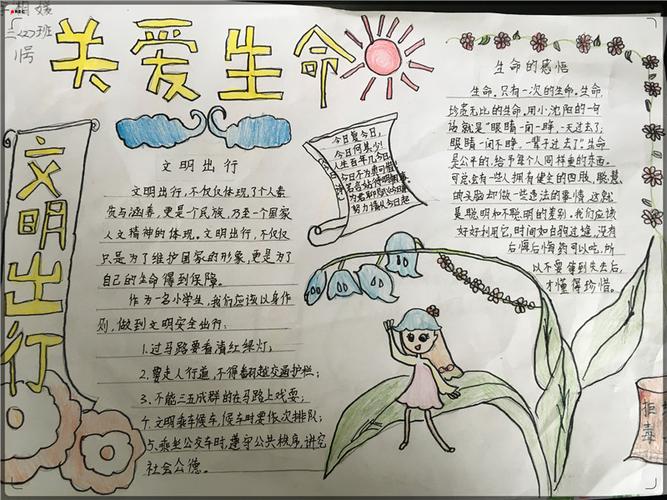 班
关爱生命
文明出行
文明出行
文明出行,不仅仅体现了个人素
质与涵养,更是个民族,乃至一个国家
人文精神的体现。文明出行,不仅仅
只是为了维护国家的形象,更是为了
自己的生命得到保障。
作为一名小学生,我们应该以身作
则,做到文明安全出行:
1.过马路要看清红绿灯;
2.要走人行道,不得翻越交通护栏;
3.不能三五成群的在马路上戏耍;
4.文明乘车候车,候车时要依次排队;
5.乘坐公交车时,遵守公共秩序,讲究
社会公德。
今日复今日,
今日何其少!
人生百年几今日,
今日不为真可惜!
若言姑待明朝
为君聊赋今日
努力请从今日起
生命的感悟
生命,只有一次的生命。生命,
珍贵无比的生命,用小沈阳的一句
话就是"眼睛一闭一睁,一天过去了;
眼睛一闭不睁,一辈子过去了。"生命
是公平的,给予每个人同样重的东西。
可总会有一些人拥有健全的四肢、聪慧
头脑却做一些违法的事情,这就
是聪明和不聪明的差别,我们应该
好好利用它,时间如白驹过隙,没有
后悔后悔药可以吃,所
以不要等到失去后,
才懂得珍惜。
拒
毒